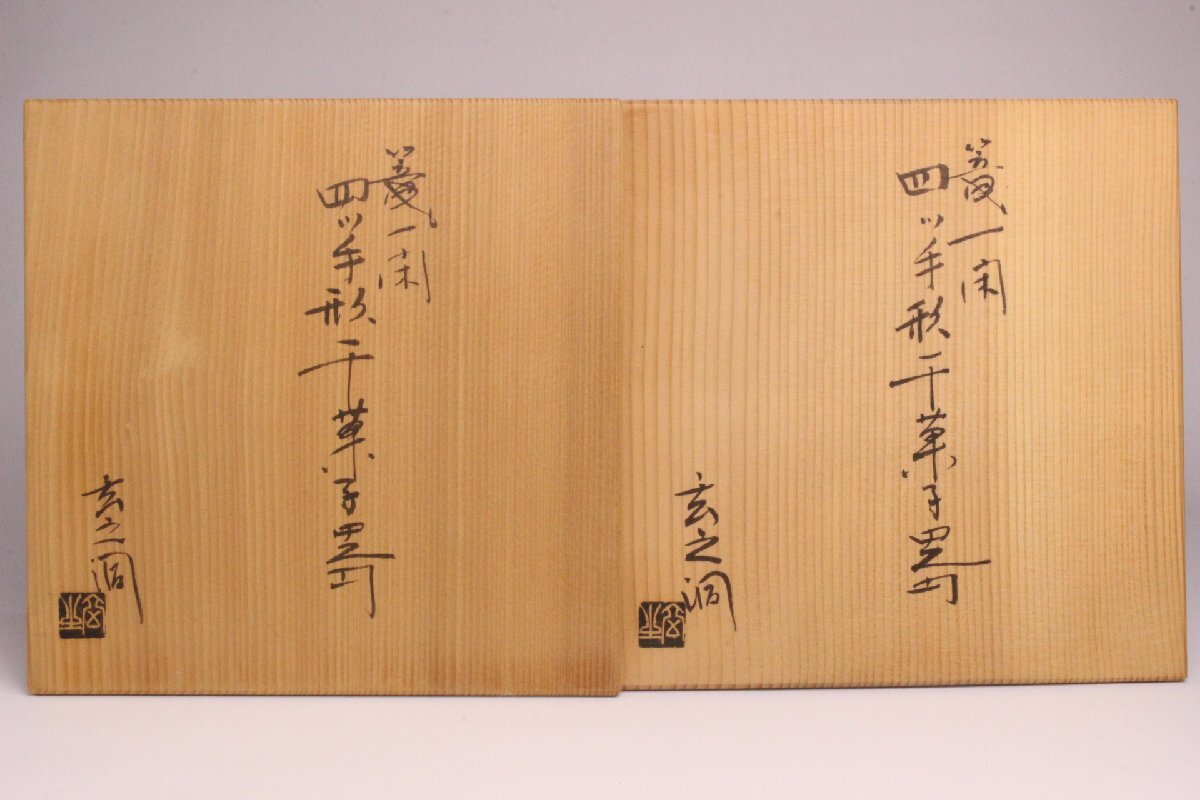 籠一閑
四ッ手形干菓子器
玄之洞
籠一閑
四ッ手形干菓子器
玄之洞